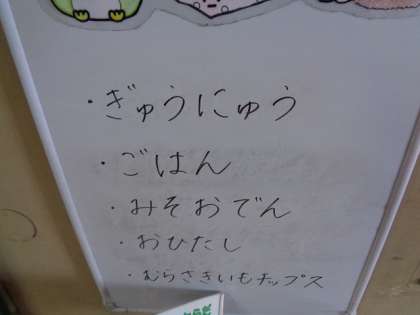 ・ぎゅうにゅう
・ごはん
・みそおでん
・おひたし
・むらさきいもチップス